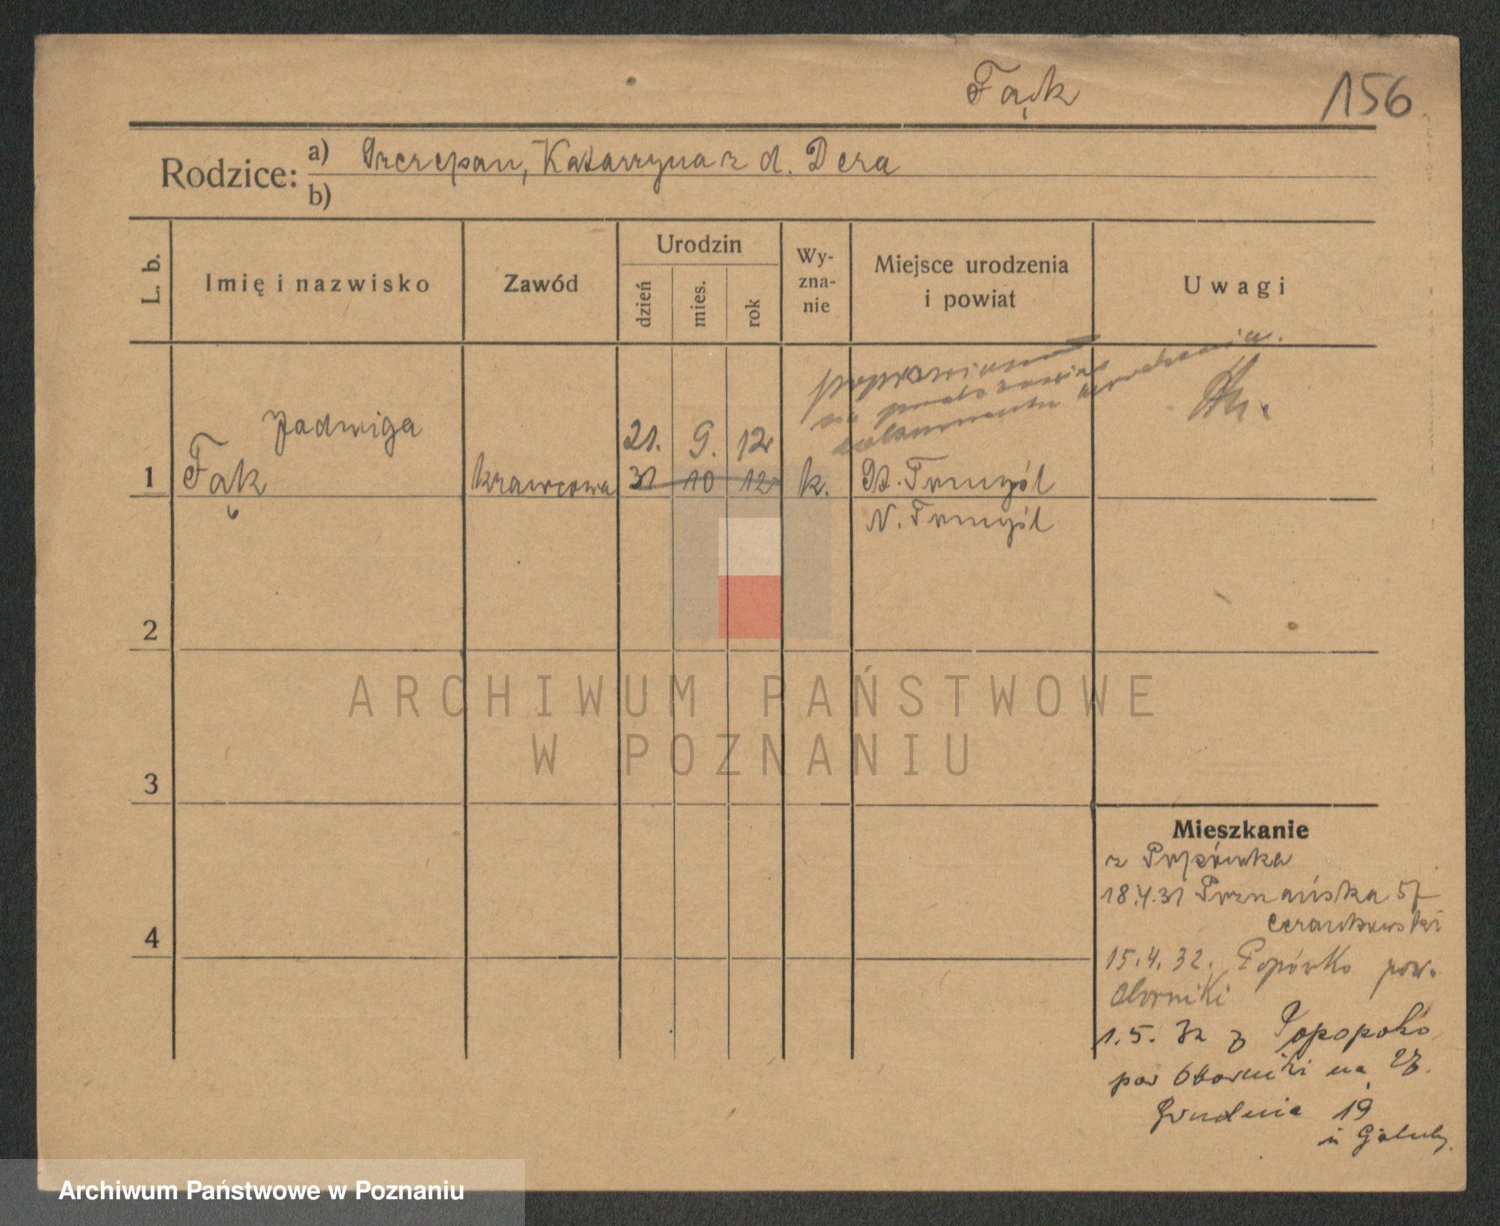 Fąk 156
Rodzice: a) Szczepan, Katarzyna z d. Dera
b)
L. b.
Imię i nazwisko
Zawód
Urodzin
dzień
mies.
rok
Wy-
zna-
nie
Miejsce urodzenia
i powiat
Uwagi
poprawiono
na podstawie
dokumentu urodzenia.
Jadwiga
21. 9. 12
1 Fąk krawcowa 31 10 12 k. St. Tomyśl
N. Tomyśl
2
ARCHIWUM PAŃSTWOWE
W POZNANIU
3
Mieszkanie
z Popówka
18.4.31 Poznańska 57
Cerankowski
4
15.4.32. Popówko pow.
Oborniki
1.5. 32 z
pow Oborniki na 27
Grudnia 19
u
Archiwum Państwowe w Poznaniu